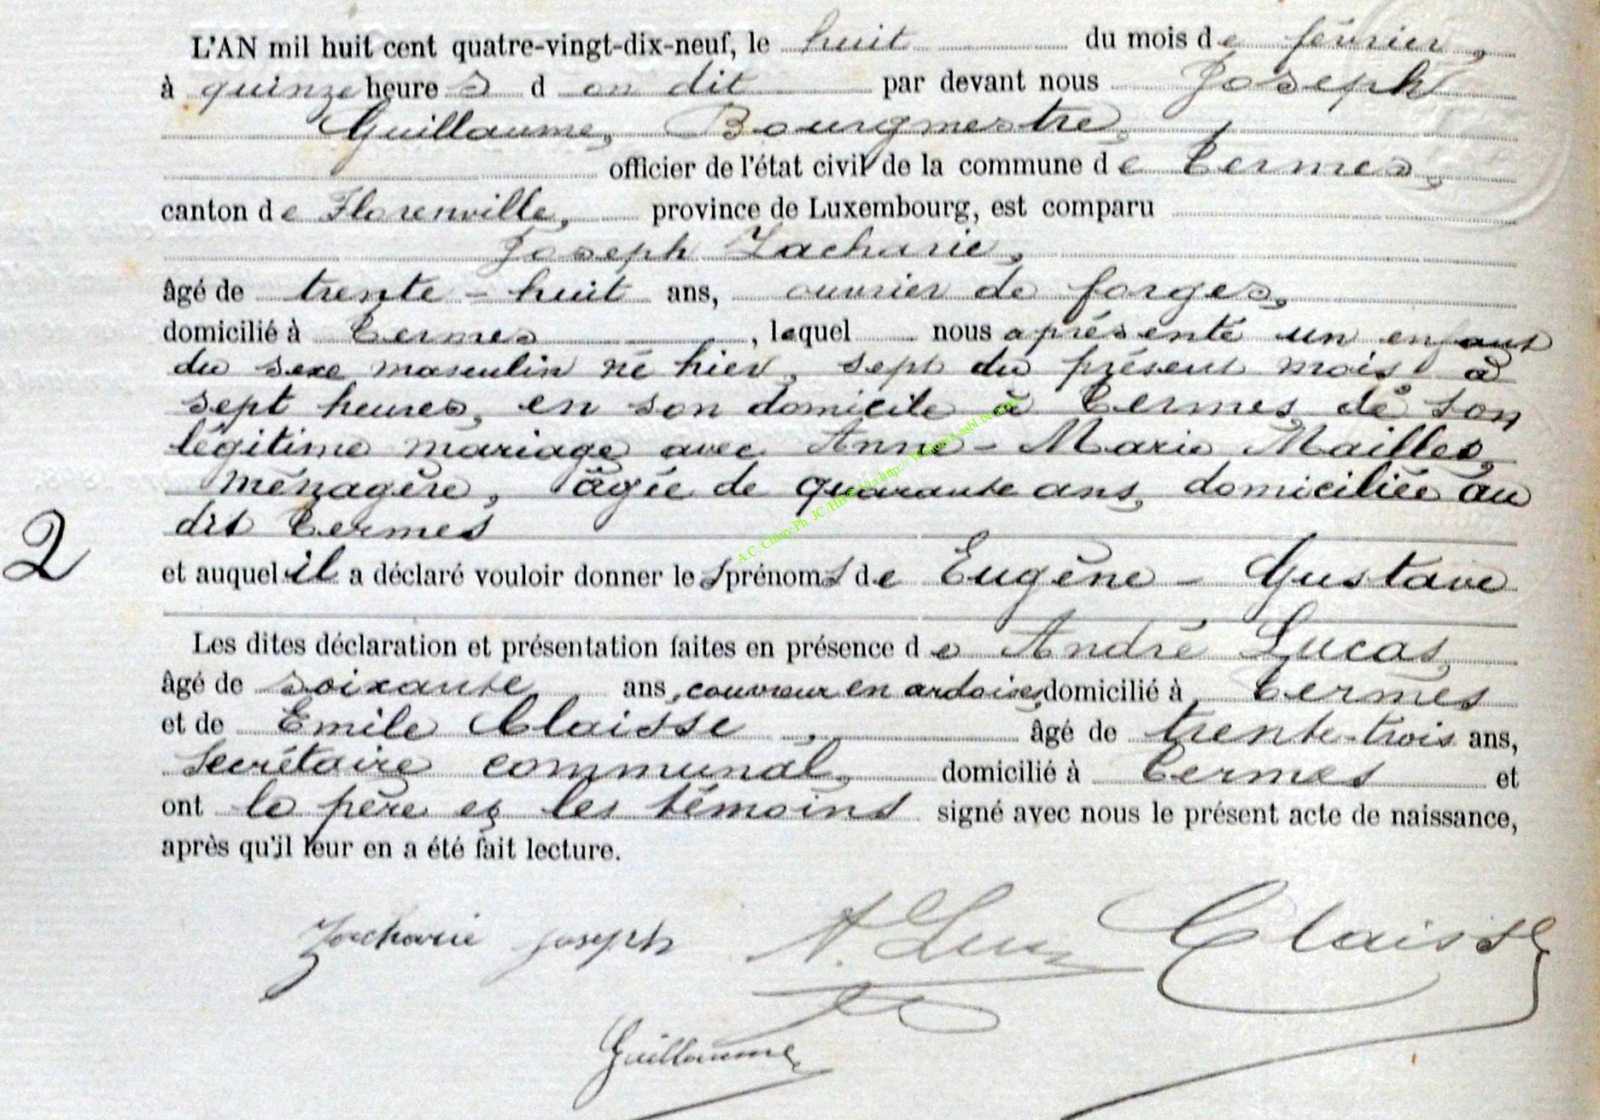 L'AN mil huit cent quatre-vingt-dix-neuf, le huit du mois de février,
à quinze heures d on dit par devant nous Joseph
Guillaume, Bourgmestre,
officier de l'état civil de la commune de Termes,
canton de Florenville, province de Luxembourg, est comparu
Joseph Zacharie,
âgé de trente-huit ans, ouvrier de forges,
domicilié à Termes, lequel nous a présenté un enfant
du sexe masculin né hier, sept du présent mois à
sept heures, en son domicile à Termes de son
légitime mariage avec Anne-Marie Mailles,
ménagère, âgée de quarante ans, domiciliée au
dit Termes
2
et auquel il a déclaré vouloir donner les prénoms de Eugène-Gustave
Les dites déclaration et présentation faites en présence de André Lucas,
âgé de soixante ans, couvreur en ardoises, domicilié à Termes
et de Emile Claisse, âgé de trente-trois ans,
secrétaire communal, domicilié à Termes et
ont le père et les témoins signé avec nous le présent acte de naissance,
après qu'il leur en a été fait lecture.
Zacharie Joseph A. Lucas Claisse
Guillaume